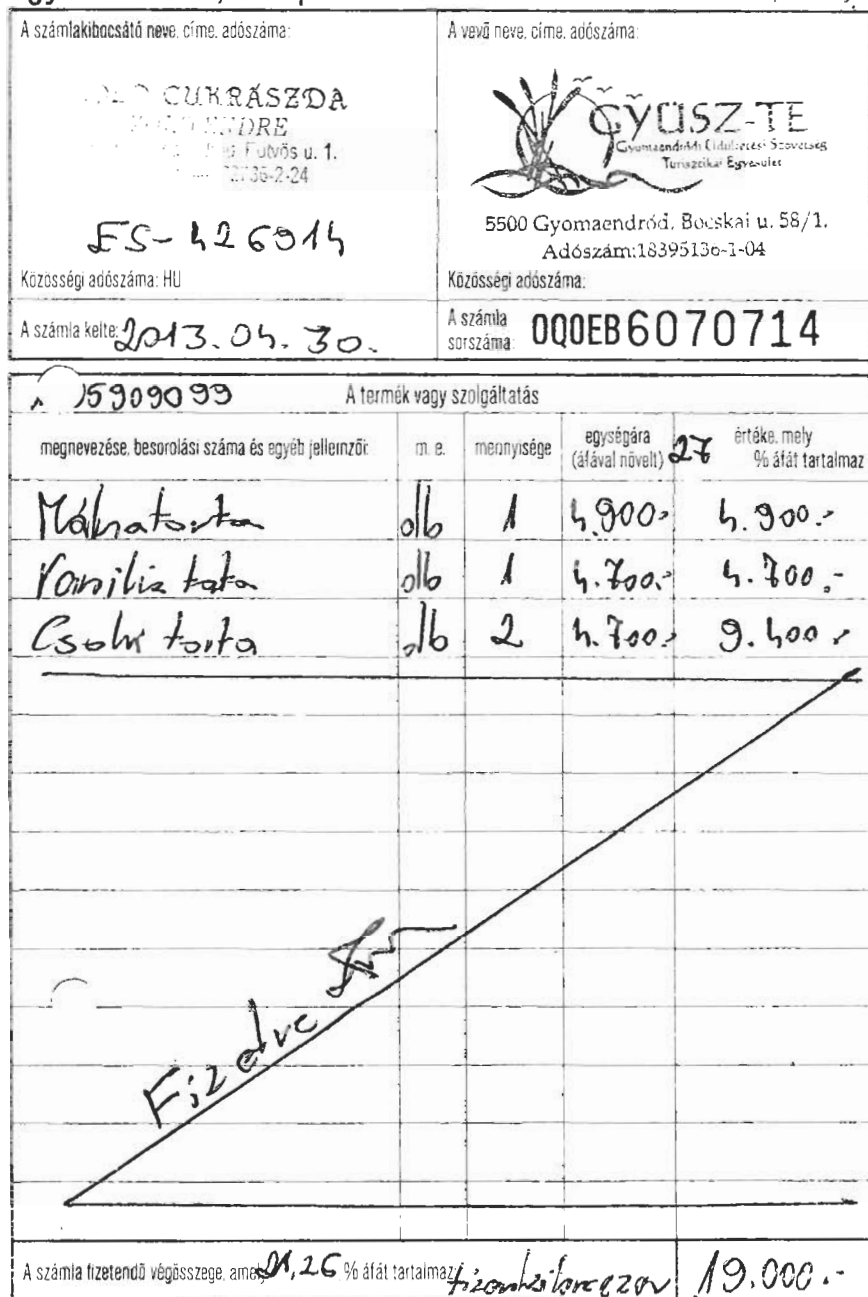 A számlakibocsátó neve, címe, adószáma:
CUKRÁSZDA
ENDRE
u. 1.
-2-24
ES-426914
Közösségi adószáma: HU
A számla kelte: 2013.04.30.
A vevő neve, címe, adószáma:
GYÜSZ-TE
Gyomaendrődi Üdültetési Szövetség
Turisztikai Egyesület
5500 Gyomaendrőd, Bocskai u. 58/1.
Adószám:18395136-1-04
Közösségi adószáma:
A számla
sorszáma: 0Q0EB6070714
5909099 A termék vagy szolgáltatás
megnevezése, besorolási száma és egyéb jellemzői: m. e. mennyisége egységára (áfával növelt) 27 értéke, mely % áfát tartalmaz
Málnatorta db 1 4.900.- 4.900.-
Vanilia torta db 1 4.700.- 4.700.-
Csoki torta db 2 4.700.- 9.400.-
Fizetve
A számla fizetendő végösszege, amely 21,26 % áfát tartalmaz: tizenkilencezer 19.000.-